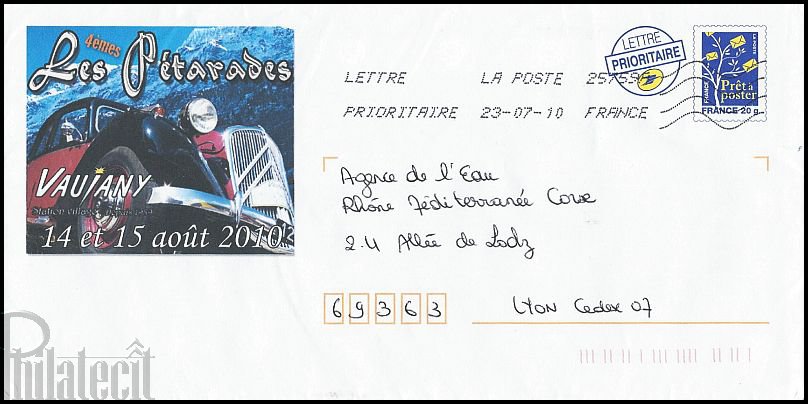 4èmes
Les Pétarades
VAUJANY
Station village depuis
14 et 15 août 2010
LETTRE
PRIORITAIRE
LETTRE LA POSTE
PRIORITAIRE 23-07-10 FRANCE
FRANCE
LA POSTE
Prêt à
poster
FRANCE 20 g
Agence de l'Eau
Rhône Méditerranée Corse
2.4 Allée de Lodz
69363 LYON Cedex 07
Philatecit